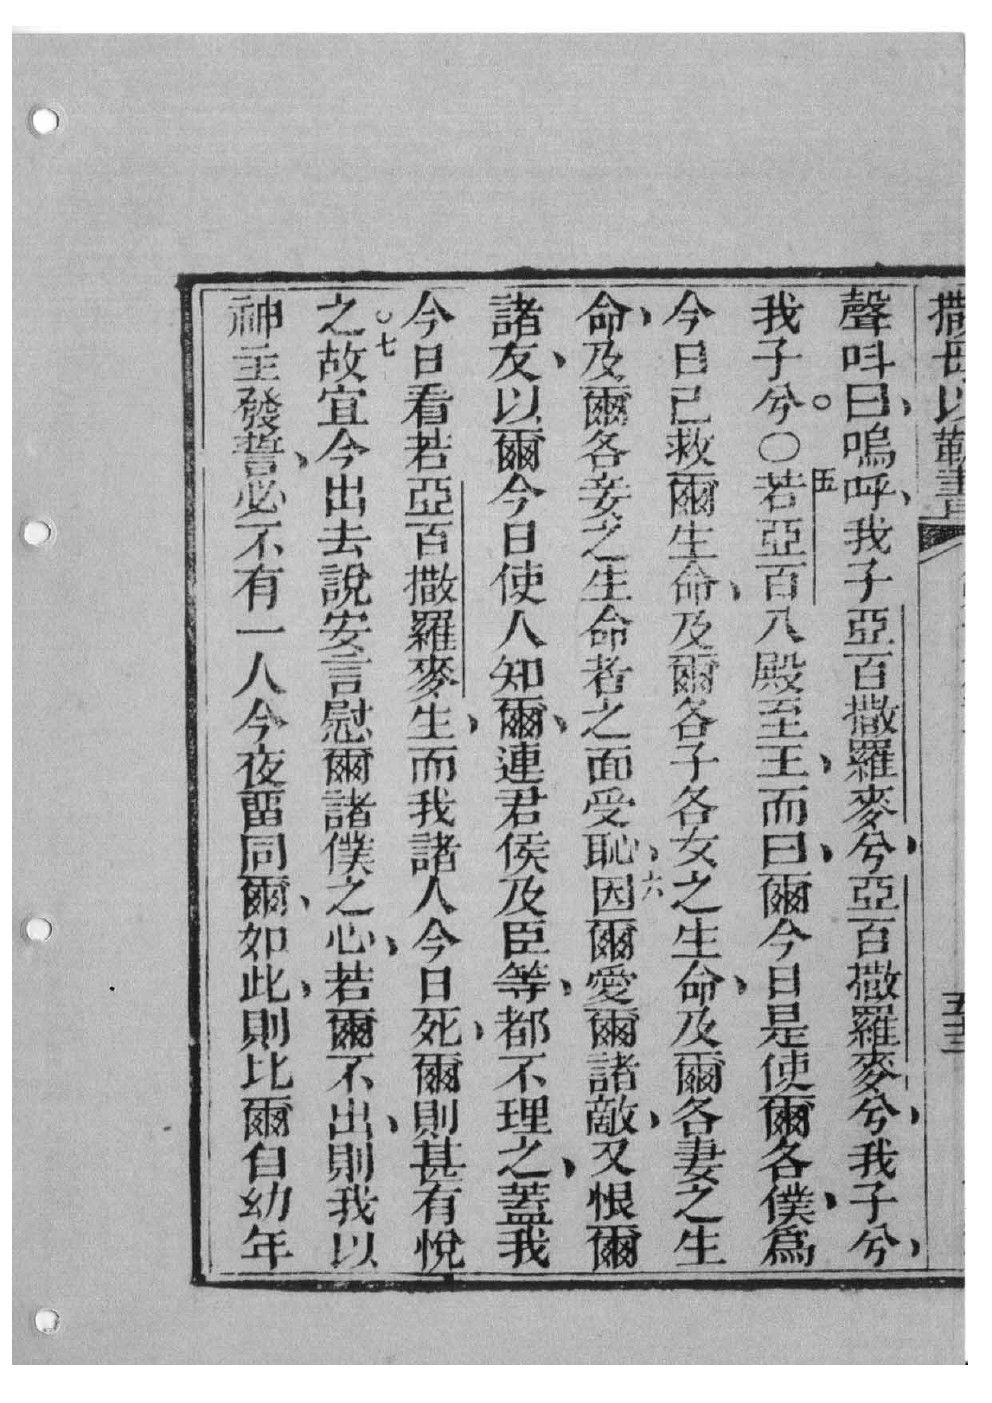 聲呌曰、嗚呼、我子亞百撒羅麥兮、亞百撒羅麥兮、我子兮、
我子兮。○五若亞百入殿至王、而曰、爾今日是使爾各僕、爲
今日已救爾生命、及爾各子各女之生命、及爾各妻之生
命、及爾各妾之生命者之面受恥、六因爾愛爾諸敵、又恨爾
諸友、以爾今日使人知爾、連君侯及臣等、都不理之、蓋我
今日看若亞百撒羅麥生、而我諸人今日死、爾則甚有悅
之○七故宜今出去說安言慰爾諸僕之心、若爾不出、則我以
神主發誓、必不有一人今夜畱同爾、如此、則比爾自幼年